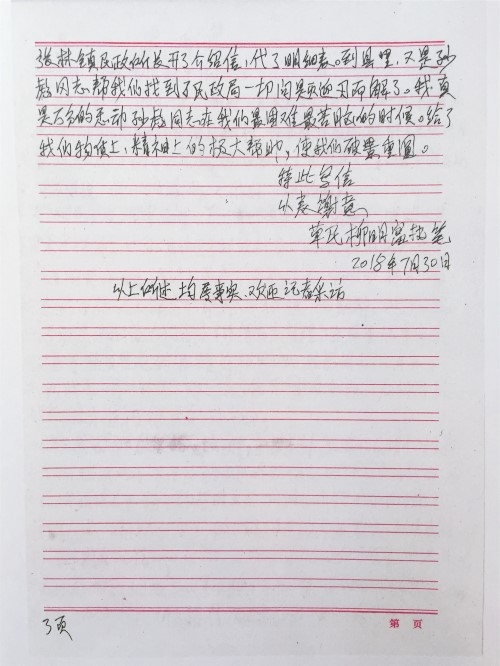 张林镇民政所开了介绍信，代了明细表。到县里，又是孙
彪同志帮我们找到了民政局一切问题迎刃而解了。我真
是万分的感动孙彪同志在我们最困难最苦恼的时候。给了
我们物质上，精神上的极大帮助，使我们破镜重圆。
特此写信
以表谢意，
草民柳明富执笔
2018年7月30日
以上所述均属事实、欢迎记者采访
3页
第 页